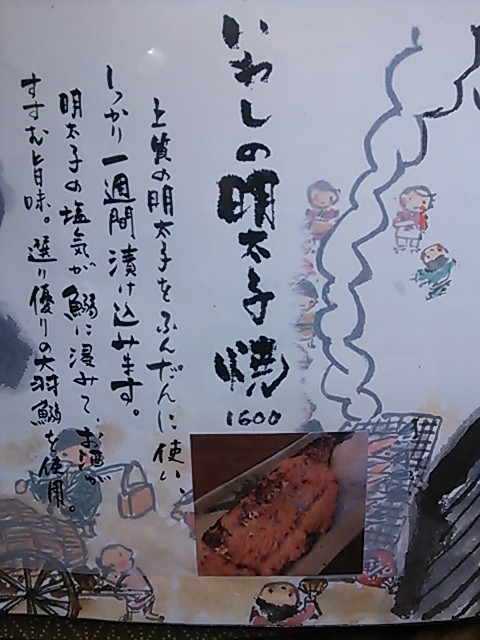 いわしの明太子焼
1600
上質の明太子をふんだんに使い、
しっかり一週間漬け込みます。
明太子の塩気が鰯に浸みて、お酒が
すすむ旨味。選り優りの大羽鰯を使用。